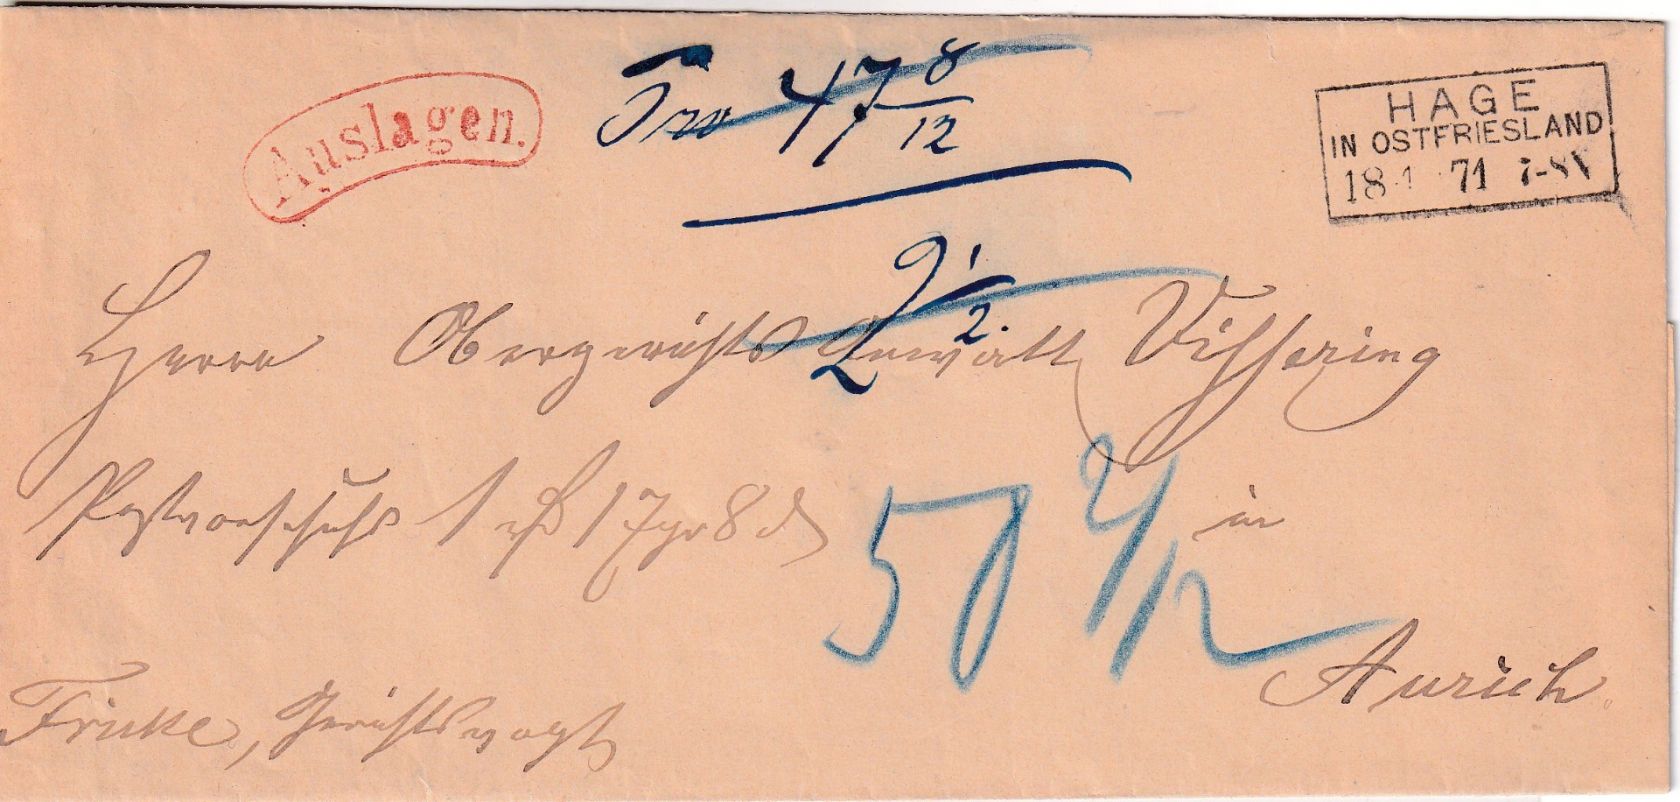 Auslagen.
Pro 47 8/12
HAGE
IN OSTFRIESLAND
18 1 71 7-8 V
2 1/2.
Herrn Obergerichts Anwalt Vissering
Postvorschuß 1 rℓ 17 gr 8 d
50 2/12
in
Aurich.
Fricke, Gerichtsvogt